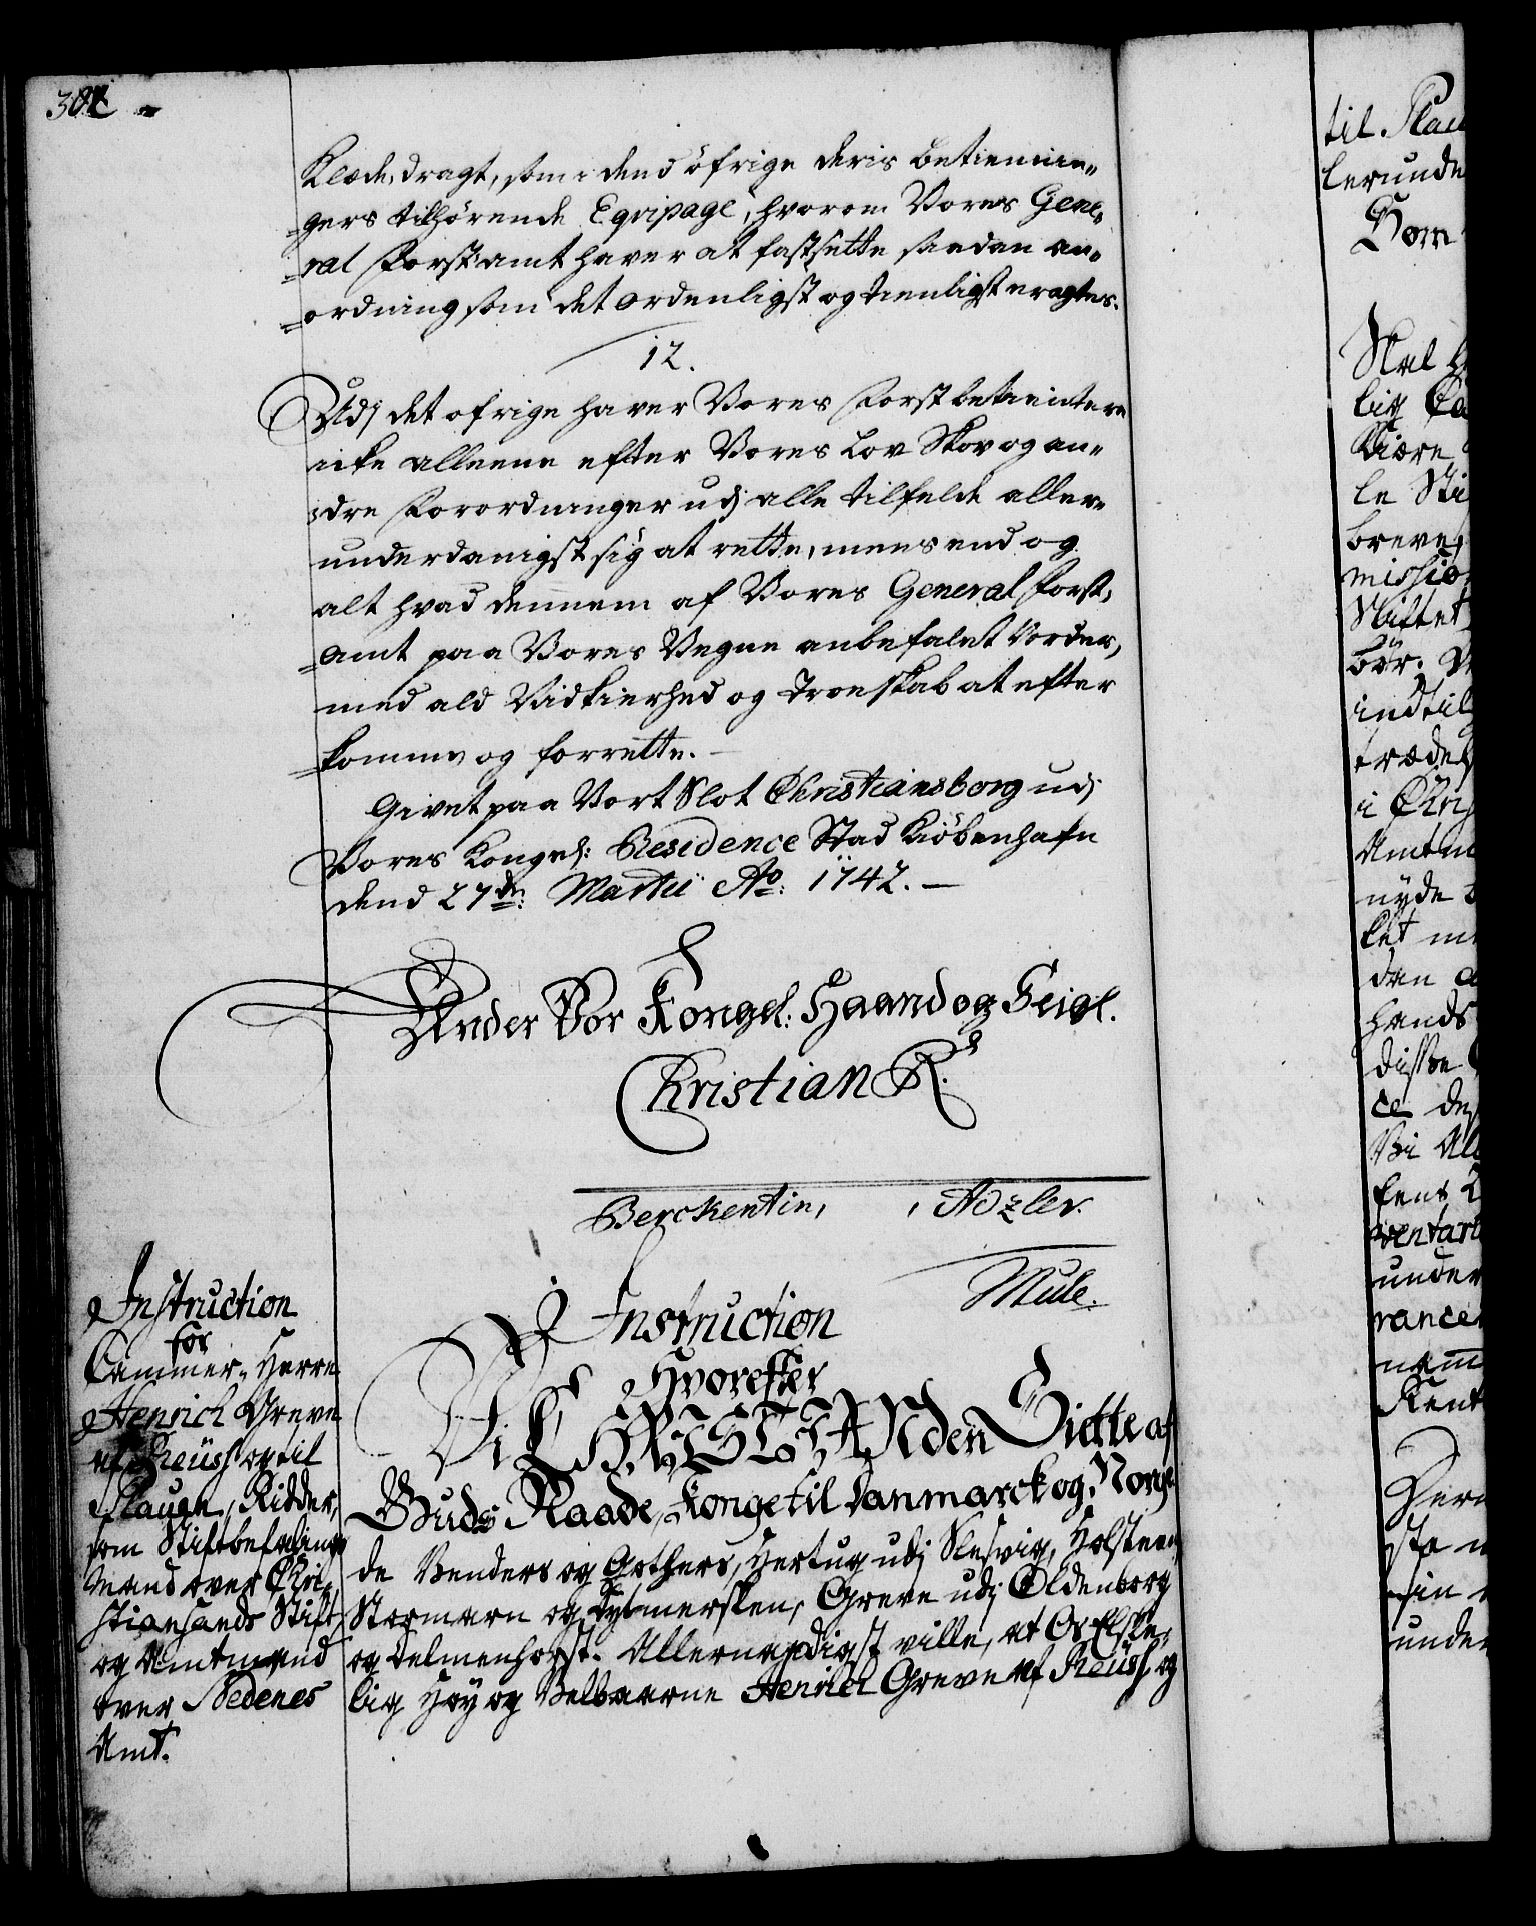 Klæde-dragt, som i dend öfrige deris betienin„
„gers tilhörende Eqvipage, hvorom Vores Gene„
„ral Forst-amt haver at fastsette saadan an„
„ordning som det ordenligst og tienligst eragtes.
12.
Udj det ofrige haver Vores Forst betientere
icke alleene efter Vores Lov Skov og an„
„dre Forordninger udj alle tilfelde aller„
underdanigst sig at rette, mens end og
alt hvad dennem af Vores General Forst„
„amt paa Vores Vegne anbefalet Vorder,
med ald Vidkierhed og Troeskab at efter
„komme og forrette. –
Givet paa Vort Slot Christiansborg udj
Vores Kongel: Residence Stad Kiöbenhafn
dend 27de: Martii Ao: 1742. –
Under Vor Kongel: Haand og Seigl.
Christian R.
Berckentin, , Adzler.
Mule.
Instruction
for
Cammer-Herre
Henrich Greve
af Reüss og til
Plauen, Ridder,
som Stiftbefalings
Mand over Chri„
stiansands Stift
og Amtmand
over Nedenes
Amt.
Instruction
Hvorefter
Vi CHRISTIAN den Siette af
Guds Naade, Konge til Danmarck og Norge
de Venders og Gothers, Hertug udj Slesvig, Holsteen
Stormarn og Dytmersken, Greve udj Oldenborg
og Delmenhorst. Allernaadigst ville, at Os Elske„
lig Höy og Velbaarne Henrich Greve af Reüss og
til Plau
lerunde
Som
Skal
lig
Kiære
le Sti
breve,
missio
Stiftet
bör.
indtil
træde
i Chri
Amtm
nyde
ket m
den
hands
disse
ce
Vi All
kens
ventari
under
rance
nam
Rent
under